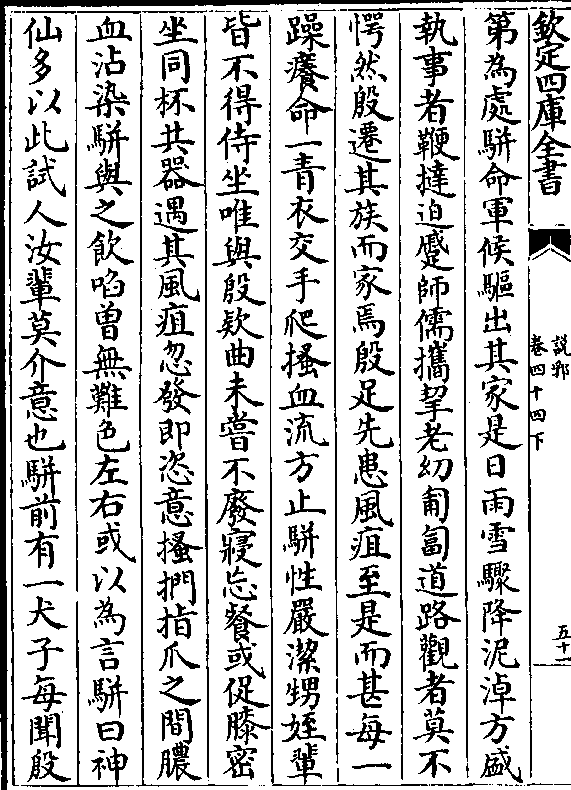 欽定四庫全書
説郛
卷四十四下
五十一
第為處駢命軍候驅出其家是日雨雪驟降泥淖方盛
執事者鞭撻迫蹙師儒攜挈老幼匍匐道路觀者莫不
愕然殷遷其族而家焉殷足先患風疽至是而甚每一
躁癢命一青衣交手爬搔血流方止駢性嚴潔甥姪輩
皆不得侍坐唯與殷欵曲未嘗不廢寢忘餐或促膝密
坐同杯共器遇其風疽忽發即恣意搔捫指爪之間膿
血沾染駢與之飲啗曽無難色左右或以為言駢曰神
仙多以此試人汝輩莫介意也駢前有一犬子每聞殷